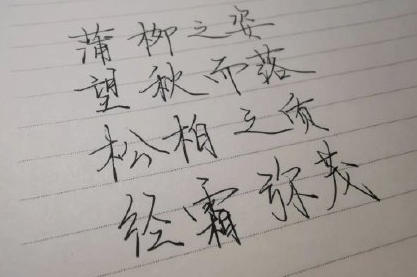 蒲柳之姿
望秋而落
松柏之质
经霜弥茂